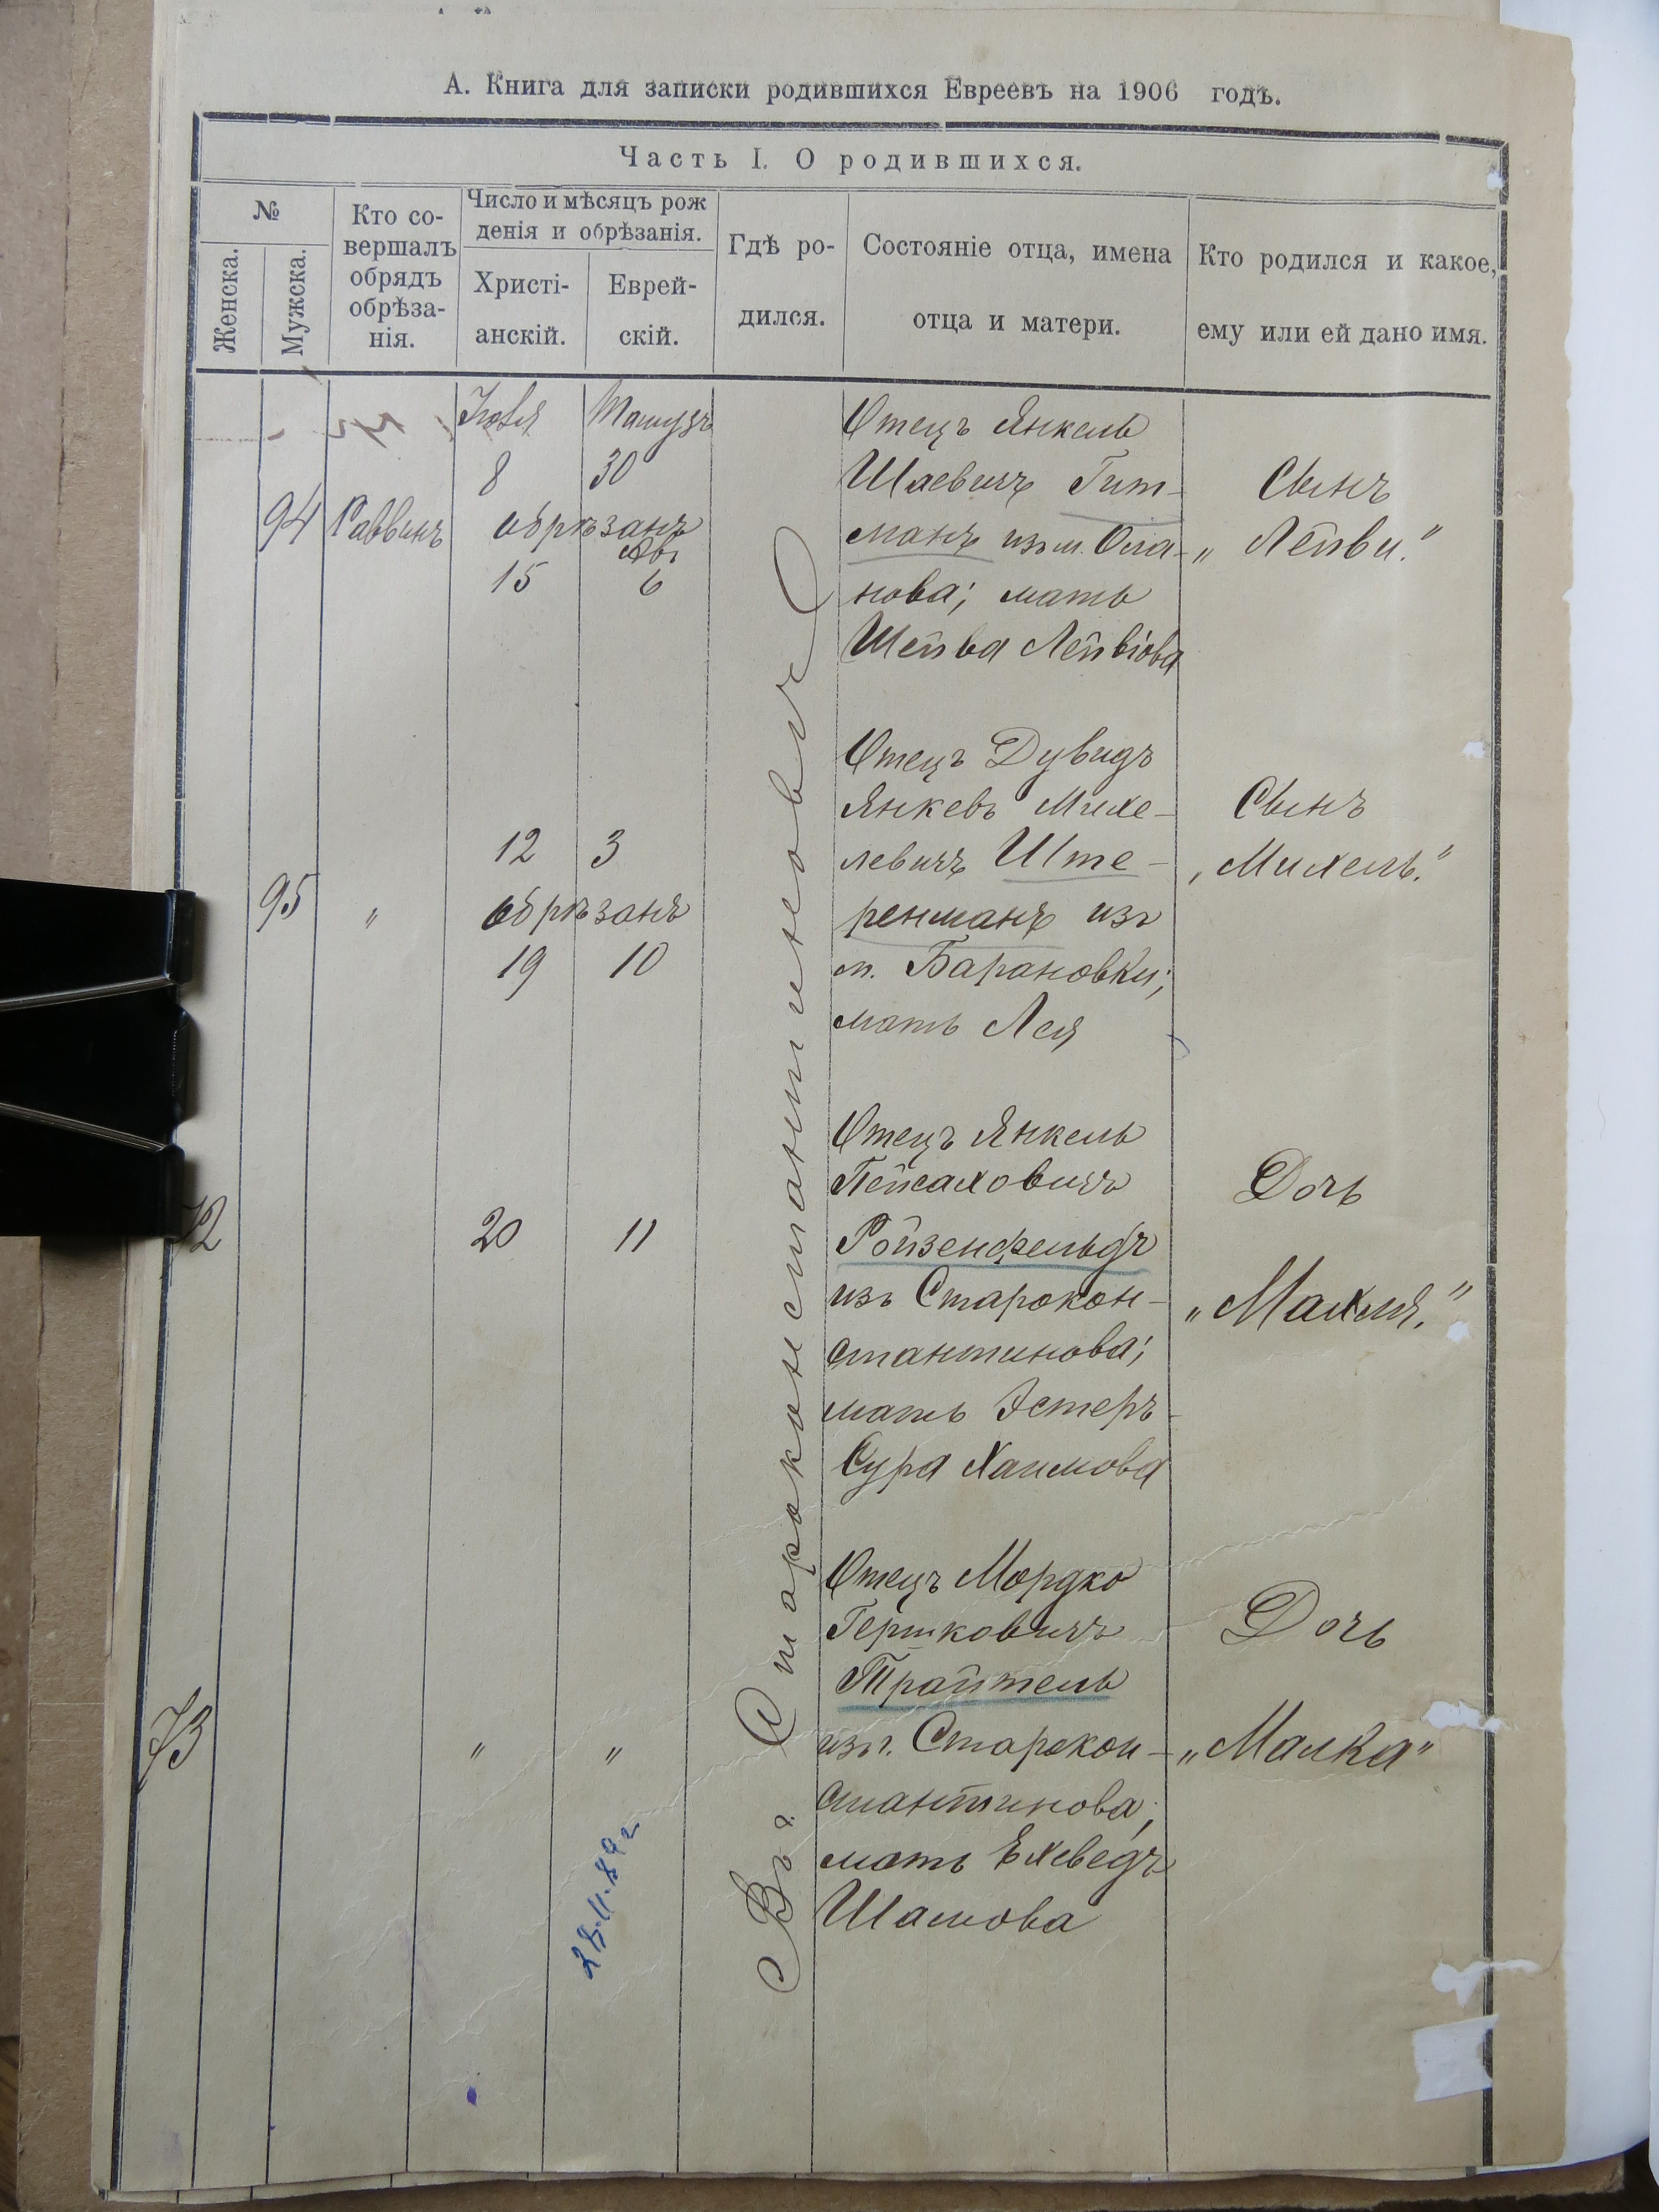 А. Книга для записки родившихся Евреевъ на 1906 годъ.
Часть I. О родившихся.
№
Женска.
Мужска.
Кто со-
вершалъ
обрядъ
обрѣза-
нія.
Число и мѣсяцъ рож
денія и обрѣзанія.
Христі-
анскій.
Еврей-
скій.
Гдѣ ро-
дился.
Состояніе отца, имена
отца и матери.
Кто родился и какое,
ему или ей дано имя.
94
Раввинъ
Іюля
8
Тамузъ
30
обрѣзанъ
Авъ
15 6
Отецъ Янкель
Шаевичъ Гит-
манъ изъ м.
нова; мать
Шейва Лейвіова
Сынъ
„Лейви."
95
"
12 3
обрѣзанъ
19 10
Отецъ Дувидъ
Янкевъ Михе-
левичъ Ште-
ренманъ изъ
м. Барановки;
мать Лея
Сынъ
„Михель."
72
20 11
Отецъ Янкель
Пейсаховичъ
Ройзенфельдъ
изъ Старокон-
стантинова;
мать Эстеръ-
Сура Хаимова
Дочь
„Махля."
73
" "
Отецъ Мордко
Гершковичъ
Трайтель
изъ г. Старокон-
стантинова;
мать Ехеведъ
Шамова
Дочь
„Малка"
Въ г. Старокон­стантиновѣ